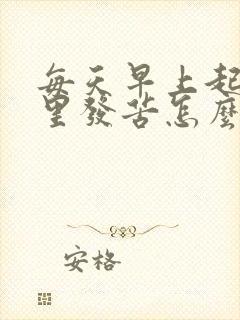 每天早上起
里發苦怎麼
安格